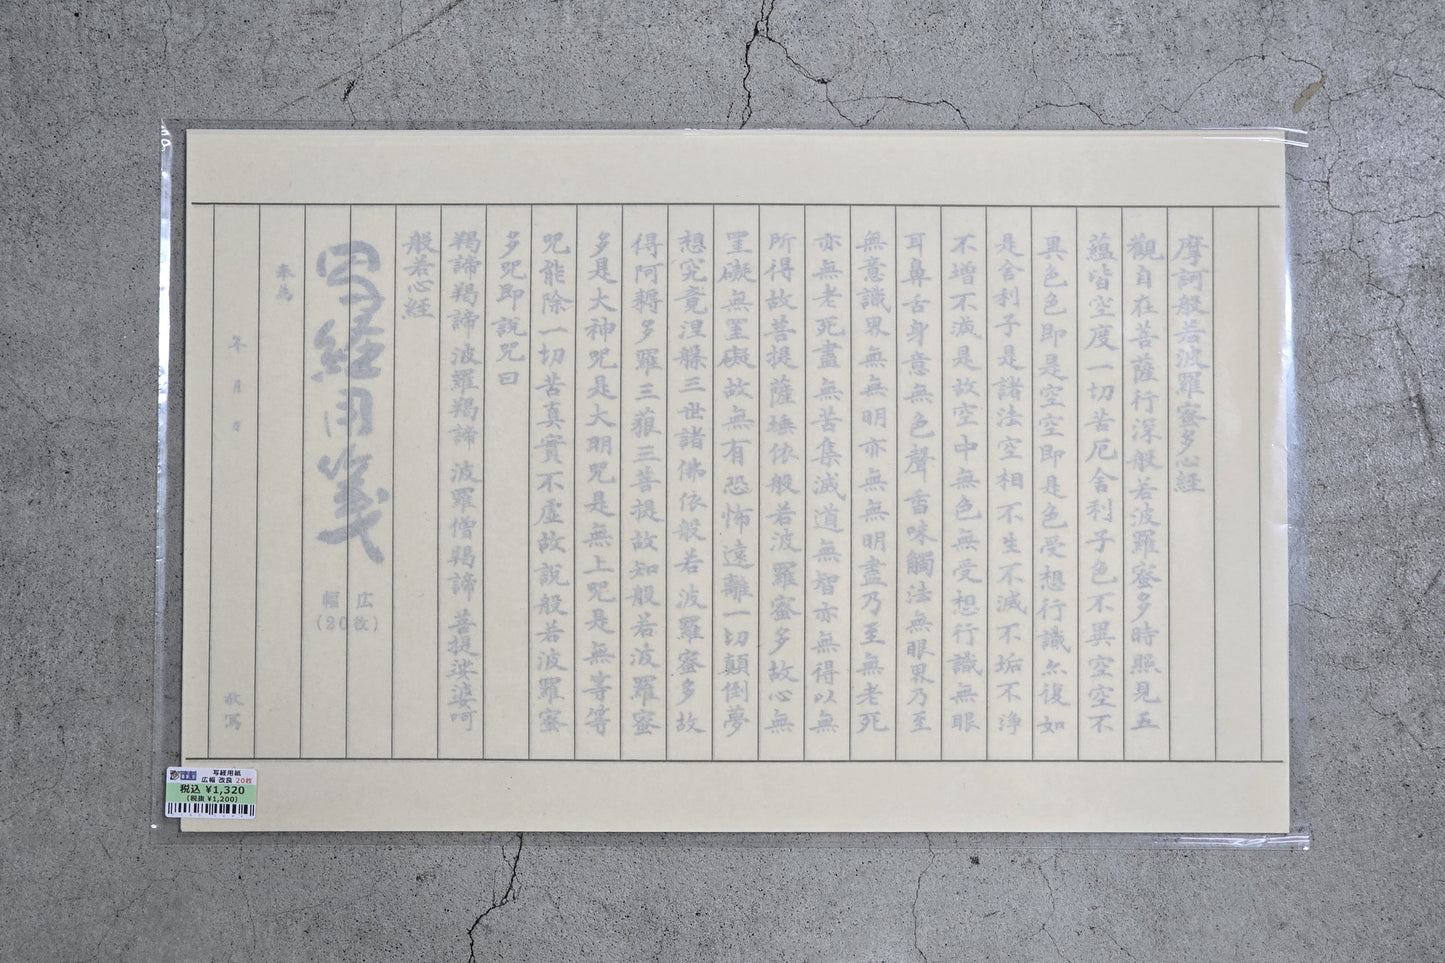 摩訶般若波羅蜜多心経
觀自在菩薩行深般若波羅蜜多時照見五
蘊皆空度一切苦厄舎利子色不異空空不
異色色即是空空即是色受想行識亦復如
是舎利子是諸法空相不生不滅不垢不浄
不増不減是故空中無色無受想行識無眼
耳鼻舌身意無色聲香味觸法無眼界乃至
無意識界無無明亦無無明盡乃至無老死
亦無老死盡無苦集滅道無智亦無得以無
所得故菩提薩埵依般若波羅蜜多故心無
罣礙無罣礙故無有恐怖遠離一切顛倒夢
想究竟涅槃三世諸佛依般若波羅蜜多故
得阿耨多羅三藐三菩提故知般若波羅蜜
多是大神咒是大明咒是無上咒是無等等
咒能除一切苦真實不虚故説般若波羅蜜
多咒即説咒曰
羯諦羯諦波羅羯諦波羅僧羯諦菩提娑婆呵
般若心経
写経用箋
広幅
(20枚)
奉為
年月日
敬写
写経用紙
広幅 改良 20枚
税込 ¥1,320
(税抜 ¥1,200)